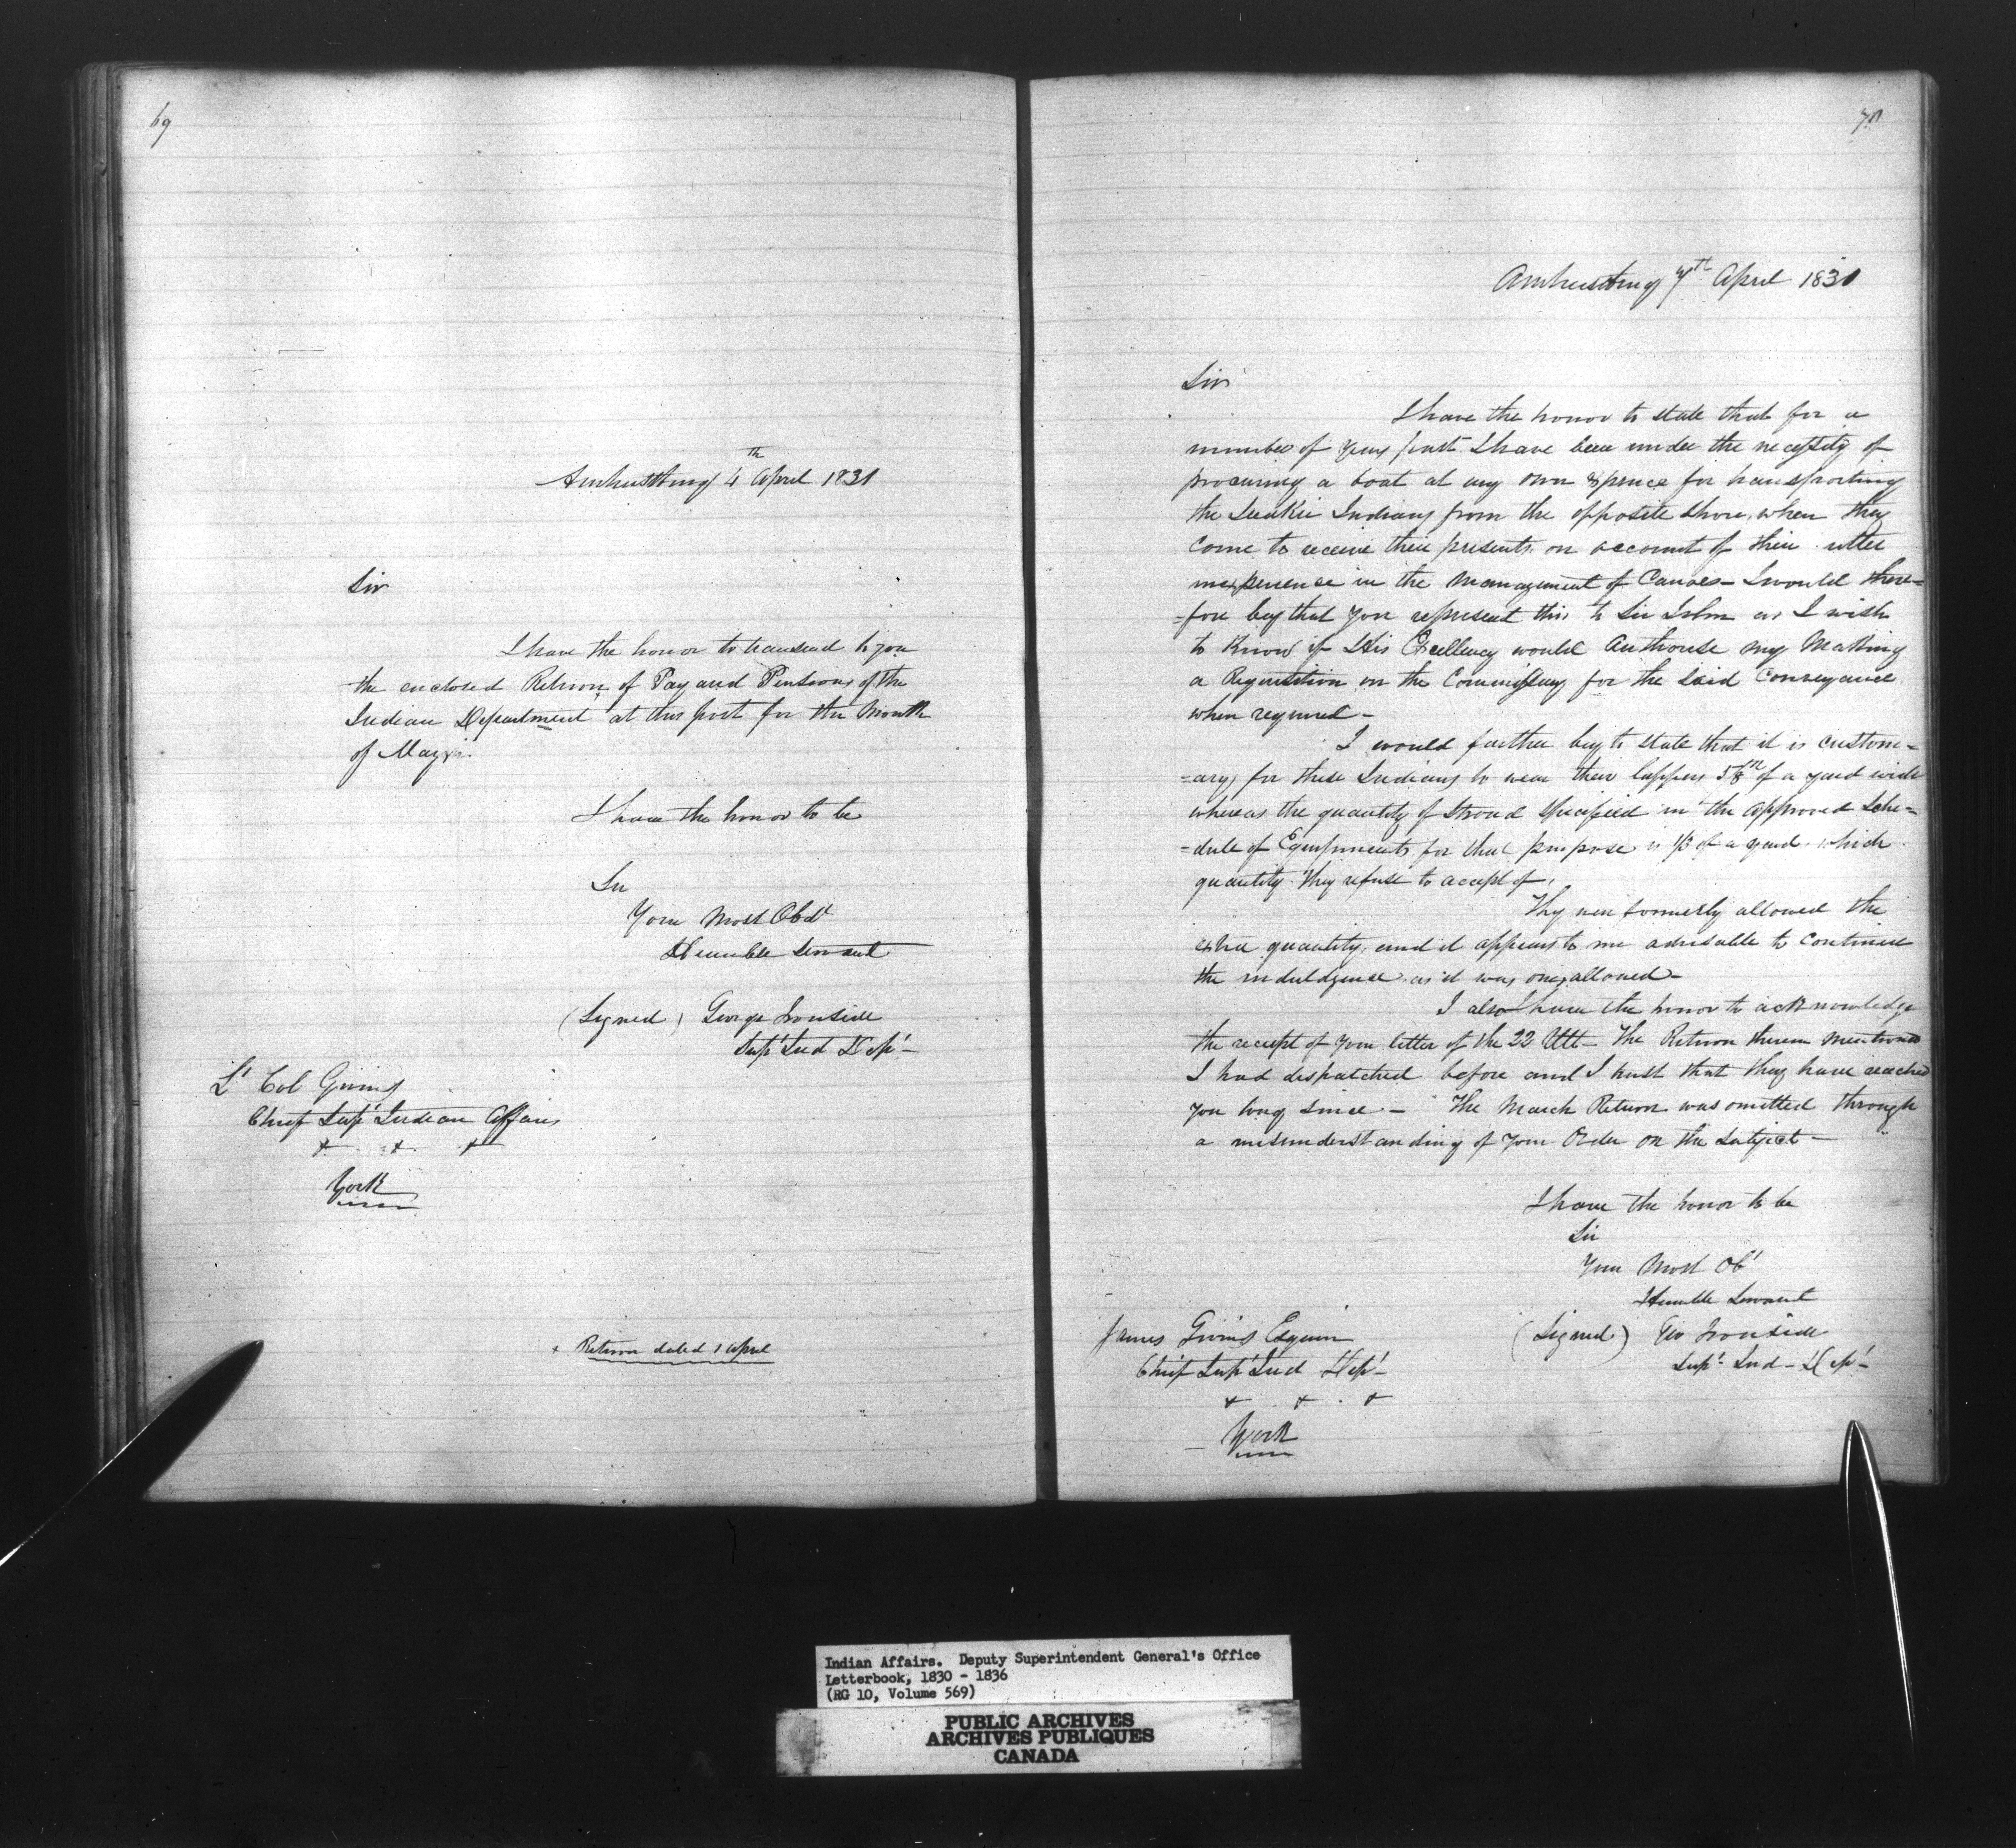 69
Amherstburg 4th April 1831
Sir
I have the honor to transmit to you
the enclosed Return of Pay and Pensions of the
Indian Department at this post for the Month
of May
I have the honor to be
Sir
Your Most Obdt
Humble Servant
(Signed) George Ironside
Supt Ind Dept
Lt Col Givins
Chief Supt Indian Affairs
+ + +
York
+ Return dated 1 April
70
Amherstburg 7th April 1831
Sir
I have the honor to state that for a
number of years past I have been under the necessity of
procuring a boat at my own expence for transporting
the Indians from the opposite shore, when they
come to receive their presents on account of their utter
inexperience in the Management of Canoes - I would there=
=fore beg that you represent this to Sir John as I wish
to Know if His Excellency would Authorise my Making
a Requisition on the Commissary for the said Conveyance
when required -
I would further beg to state that it is custom=
=ary for these Indians to wear their lappers of a yard wide
whereas the quantity of Stroud specified in the approved Sche=
=dule of Equipments for that purpose is 1/3 of a yard which
quantity they refuse to accept of,
They were formerly allowed the
extra quantity, and it appears to me advisable to continue
the induldgence as it was once allowed -
I also have the honor to acknowledge
the receipt of your letter of the 22 Ult - The Return therein mentioned
I had dispatched before and I trust that they have reached
you long since - The March Return was omitted through
a misunderstanding of your Order on the Subject -
I have the honor to be
Sir
Your Most Obt
Humble Servant
(Signed) Geo Ironside
Supt Ind - Dept
James Givins Esquire
Chief Supt Ind Dept -
+ + +
York
Indian Affairs. Deputy Superintendent General's Office
Letterbook, 1830 - 1836
(RG 10, Volume 569)
PUBLIC ARCHIVES
ARCHIVES PUBLIQUES
CANADA